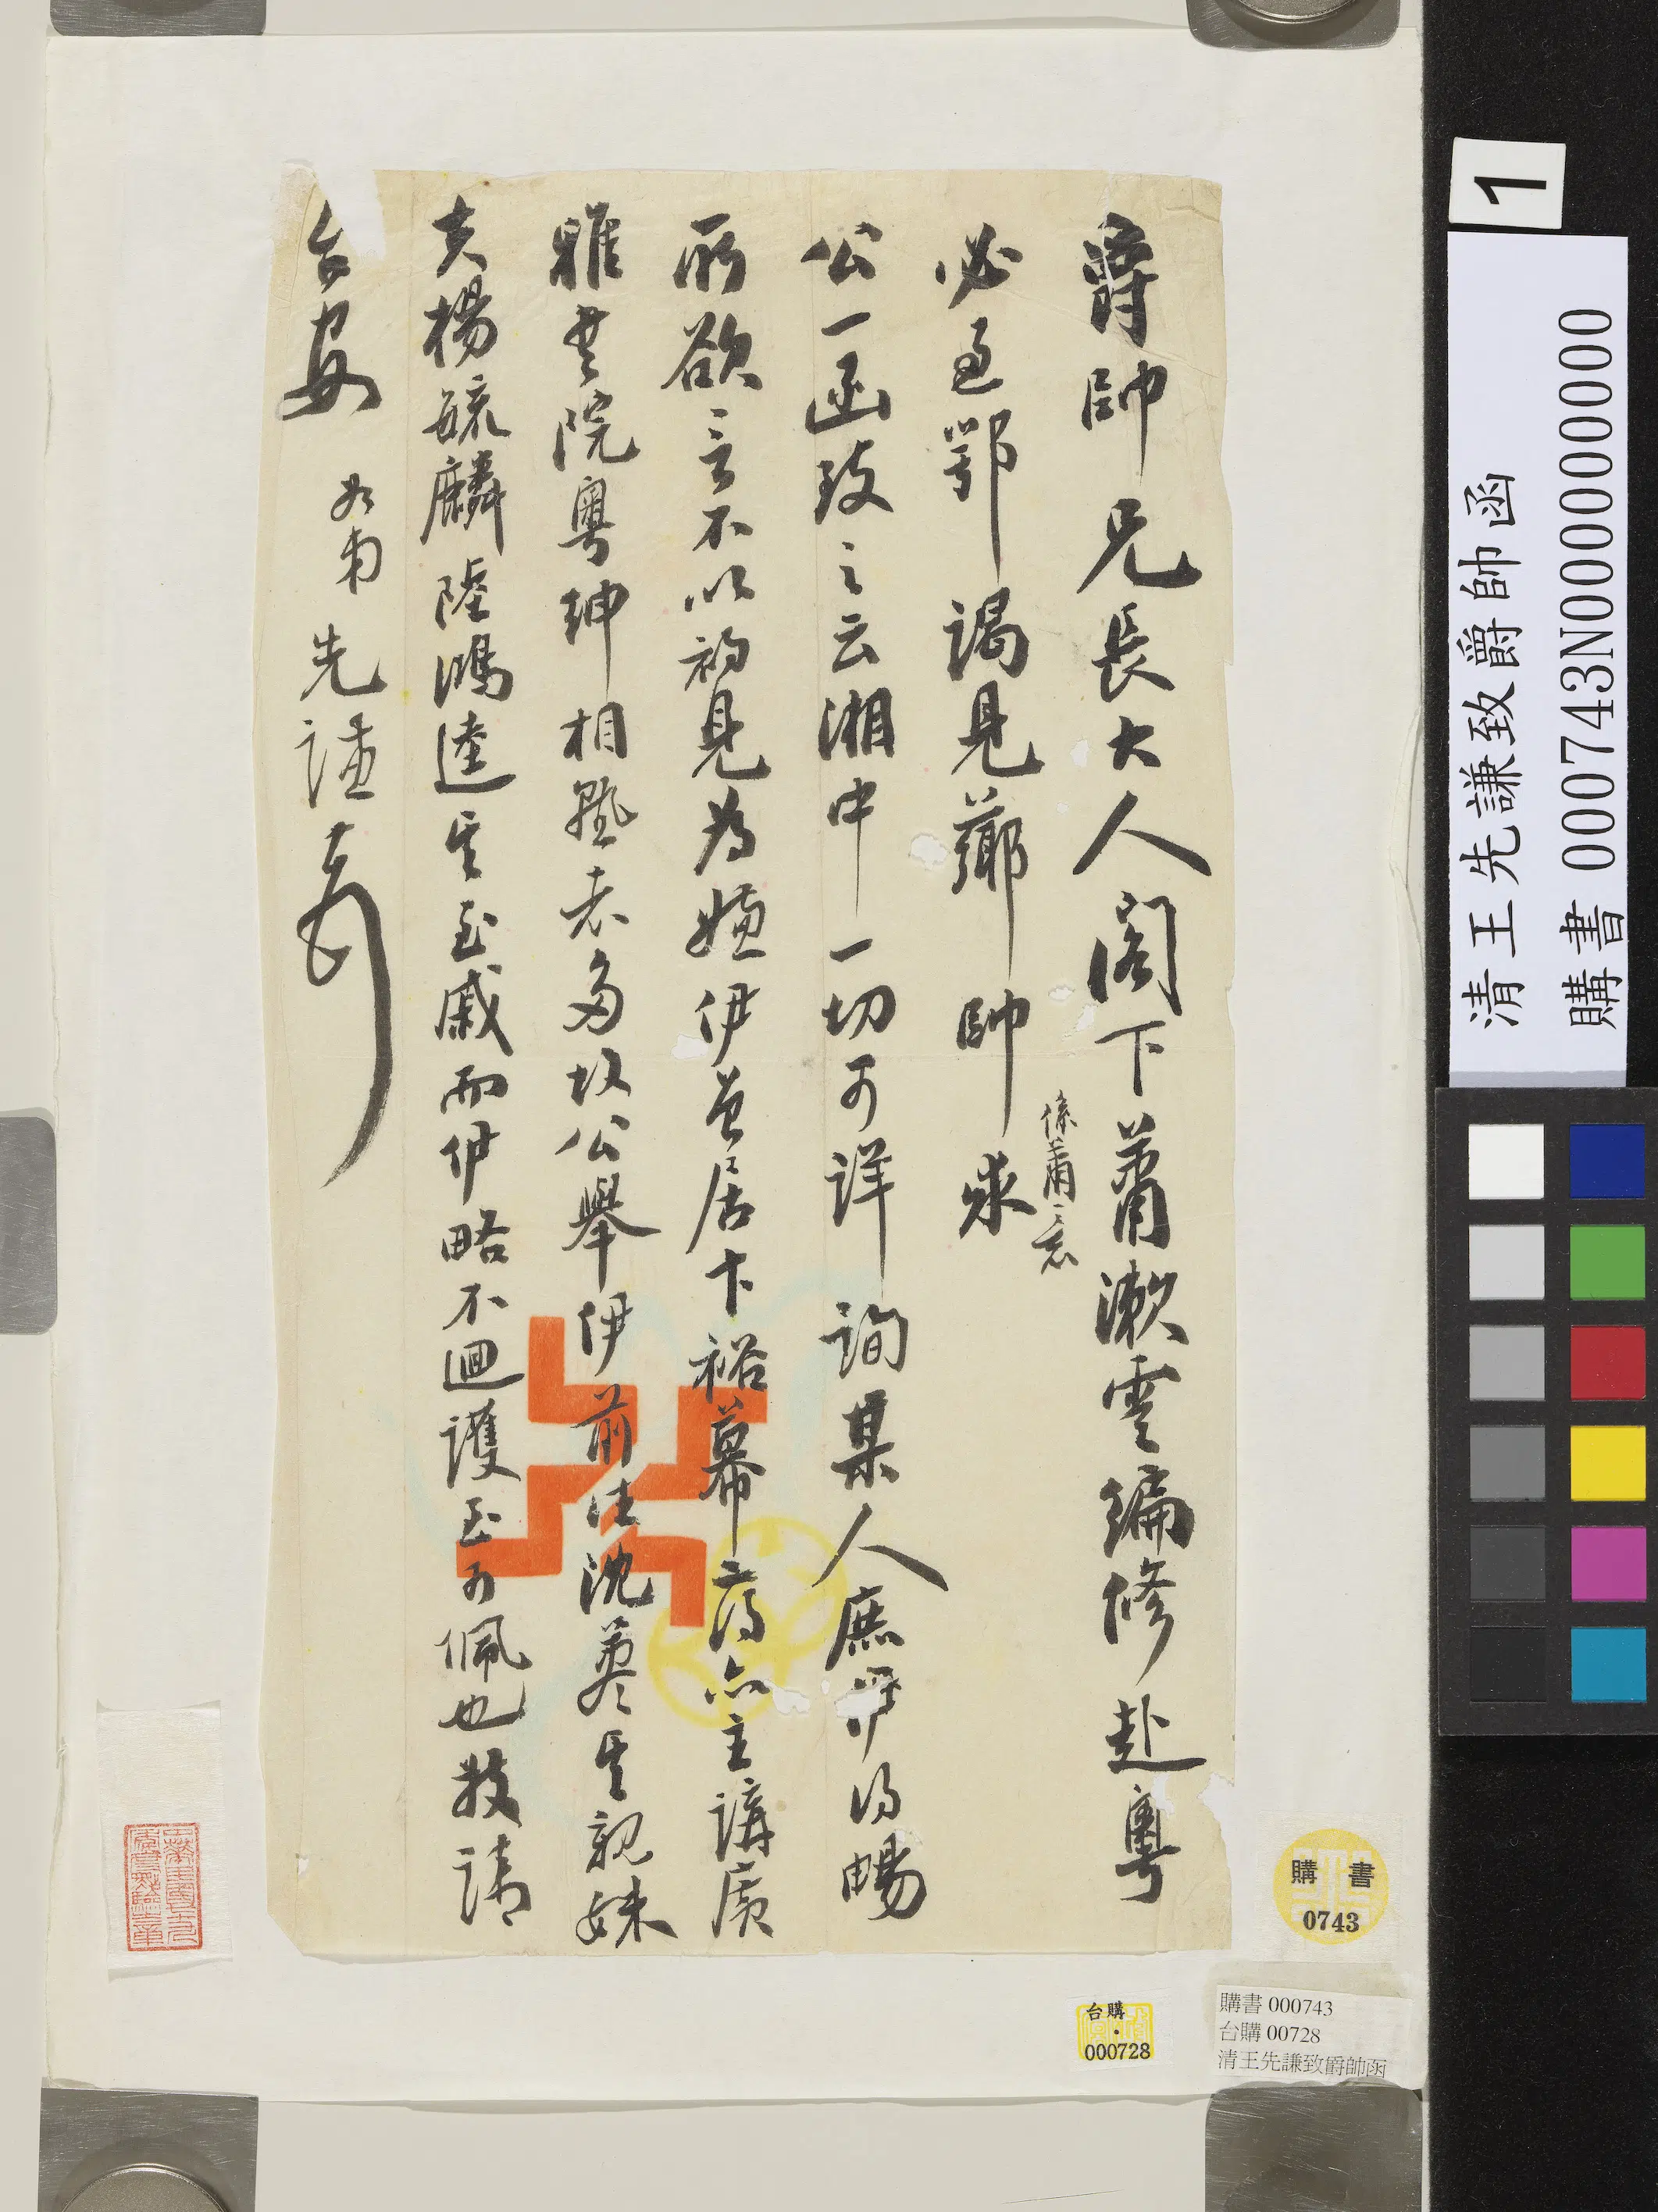 爵帥兄長大人閣下蕭漱雲編修赴粵
必過鄂謁見薌帥求
係蕭之意
公一函致之云湘中一切可詳詢某人庶伊得暢
所欲言不以初見為嫌伊曾居卞裕幕府亦主講廣
雅書院粵紳相熟者多故公舉伊前往沈藎生親妹
夫楊毓麟陸鴻逵生至戚而伊略不迴護至可佩也敬請
台安
如弟先謙頓首
清王先謙致爵帥函
購書 000743N000000000
1
購書
0743
台購
000728
購書 000743
台購 00728
清王先謙致爵帥函